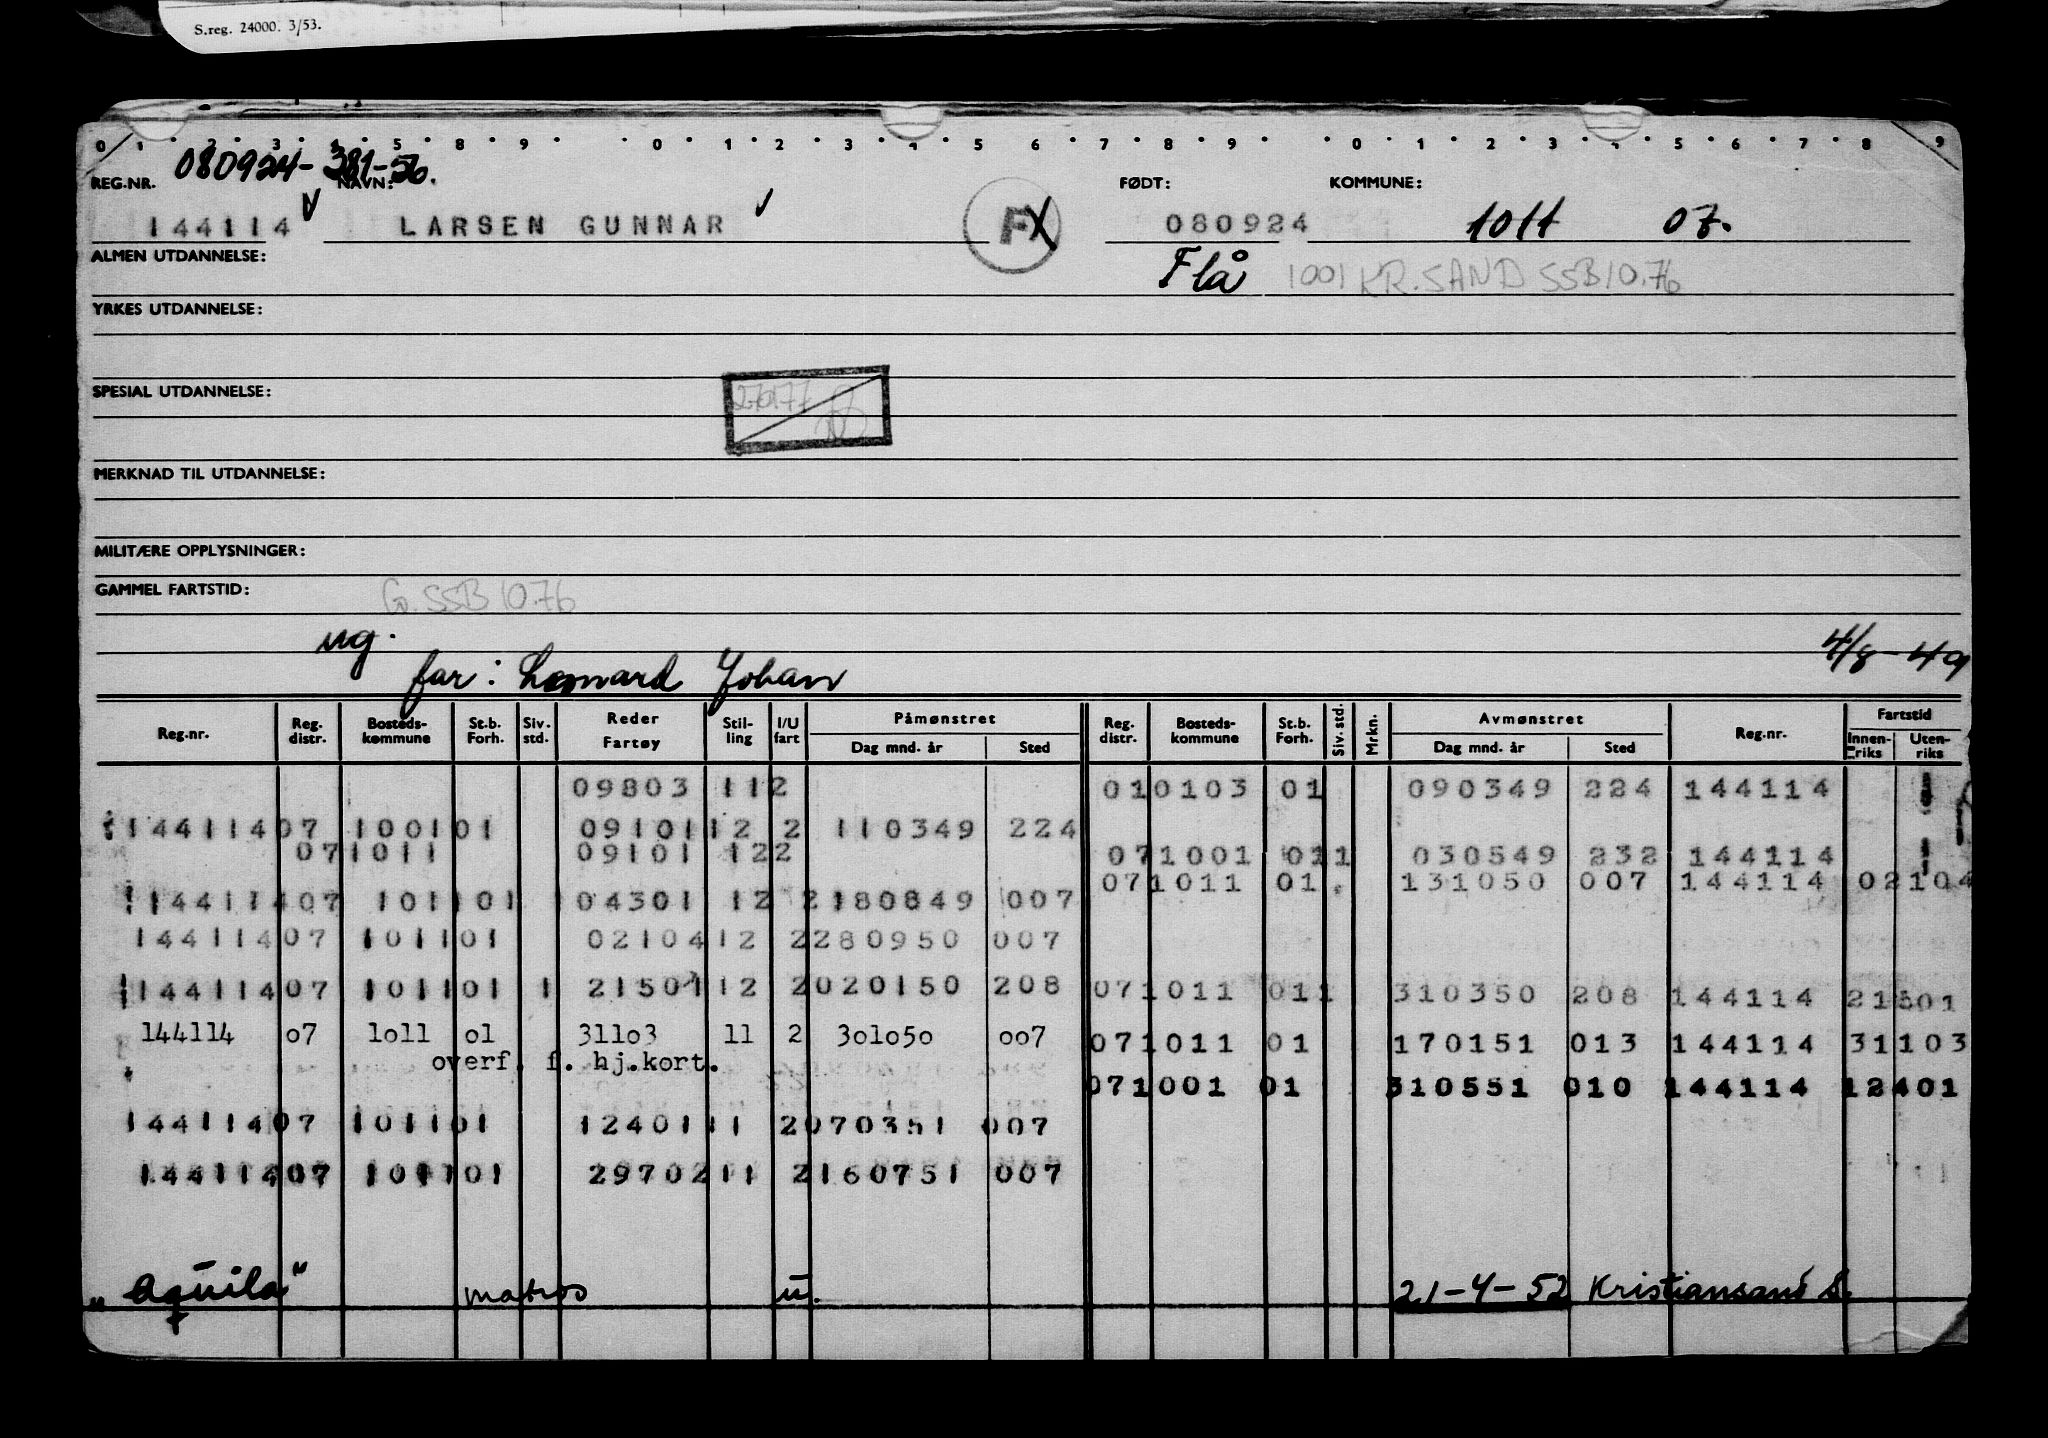 S.reg. 24000. 3/53.
0 1 2 3 5 8 9 0 1 2 3 4 5 6 7 8 9 0 1 2 3 4 5 6 7 8 9
080924-381-56.
REG.NR. NAVN: FØDT: KOMMUNE:
144114 LARSEN GUNNAR FX 080924 1011 07.
ALMEN UTDANNELSE: Flå 1001 KR.SAND SSB10.76
YRKES UTDANNELSE:
SPESIAL UTDANNELSE:
MERKNAD TIL UTDANNELSE:
MILITÆRE OPPLYSNINGER:
GAMMEL FARTSTID: G. SSB 10.76
ug. 4/8-49
far: Leonard Johan
Reg.nr. Reg. distr. Bosteds-kommune St.b. Forh. Siv. std. Reder Fartøy Stil-ling I/U fart Påmønstret Dag mnd. år Sted Reg. distr. Bosteds-kommune St.b. Forh. Siv. std. Mrkn. Avmønstret Dag mnd. år Sted Reg.nr. Fartstid Innen-riks Uten-riks
09803 112 010103 01 090349 224 144114
144114 07 1001 01 09101 12 2 110349 224
07 1011 09101 122 071001 011 030549 232 144114
071011 01 131050 007 144114 02104
144114 07 1011 01 04301 12 2 180849 007
144114 07 1011 01 02104 12 2 280950 007
144114 07 1011 01 1 21501 12 2 020150 208 071011 011 310350 208 144114 21501
144114 07 1011 01 31103 11 2 301050 007 071011 01 170151 013 144114 31103
overf. f. hj.kort.
071001 01 310551 010 144114 12401
144114 07 1011 01 12401 11 2 070351 007
144114 07 1011 01 29702 11 2 160751 007
"Aquila" matros u. 21-4-52 Kristiansand S.